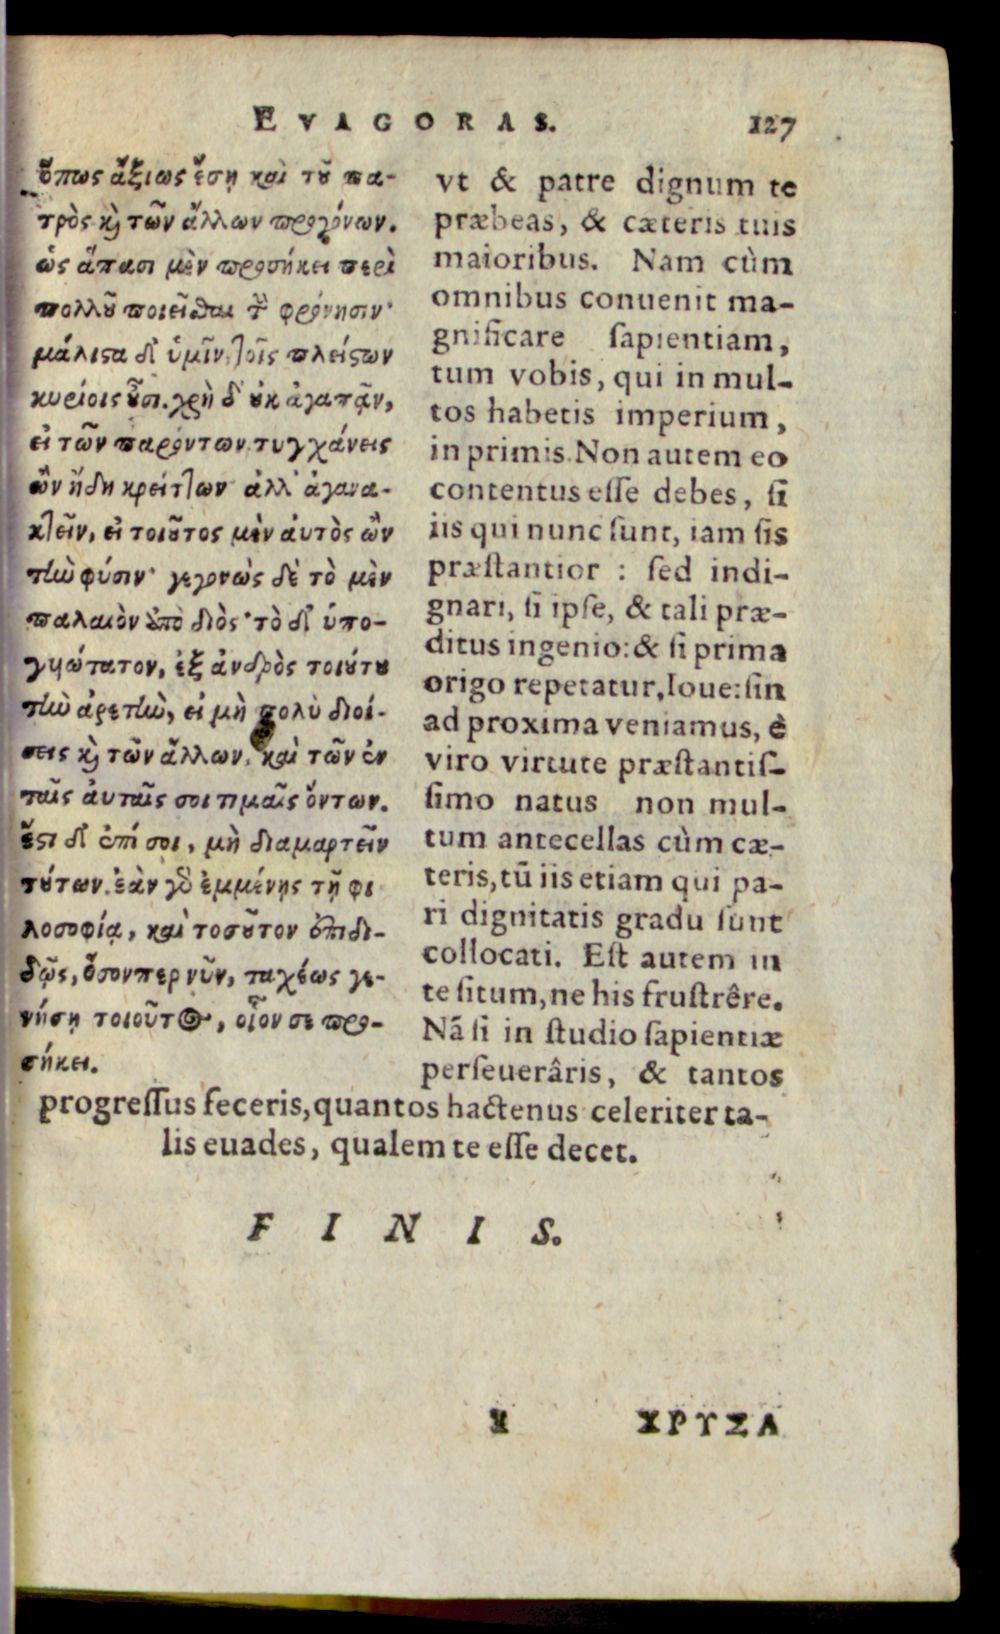 EVAGORAS. 127
ὅπως ἄξιως ἔσῃ καὶ τοῦ πα-
τρὸς καὶ τῶν ἄλλων προγόνων.
ὡς ἅπασι μὲν προσήκει περὶ
πολλοῦ ποιεῖσθαι τὴν φρόνησιν·
μάλιστα δ' ὑμῖν, τοῖς πλείστων
κυρίοις οὖσι. χρὴ δ' οὐκ ἀγαπᾷν,
εἰ τῶν παρόντων τυγχάνεις
ὢν ἤδη κρείττων· ἀλλ' ἀγανα-
κτεῖν, εἰ τοιοῦτος μὲν αὐτὸς ὢν
τὴν φύσιν· γεγονὼς δὲ τὸ μὲν
παλαιὸν ὑπὸ διὸς· τὸ δ' ὑπο-
γυιώτατον, ἐξ ἀνδρὸς τοιούτου
τὴν ἀρετὴν, εἰ μὴ πολὺ διοί-
σεις καὶ τῶν ἄλλων, καὶ τῶν ἐν
ταῖς αὐταῖς σοι τιμαῖς ὄντων.
ἔστι δ' ἐπί σοι, μὴ διαμαρτεῖν
τούτων. ἐὰν γὰρ ἐμμένῃς τῇ φι
λοσοφίᾳ, καὶ τοσοῦτον ἐπιδι-
δῷς, ὅσονπερ νῦν, ταχέως γε-
νήσῃ τοιοῦτος, οἷον σε προ-
σήκει.
vt & patre dignum te
præbeas, & cæteris tuis
maioribus. Nam cùm
omnibus conuenit ma-
gnificare ſapientiam,
tum vobis, qui in mul-
tos habetis imperium,
in primis. Non autem eo
contentus eſſe debes, ſi
iis qui nunc ſunt, iam ſis
præſtantior : ſed indi-
gnari, ſi ipſe, & tali præ-
ditus ingenio: & ſi prima
origo repetatur, Ioue: ſin
ad proxima veniamus, è
viro virtute præſtantiſ-
ſimo natus non mul-
tum antecellas cùm cæ-
teris, tū iis etiam qui pa-
ri dignitatis gradu ſunt
collocati. Eſt autem in
te ſitum, ne his fruſtrêre.
Nā ſi in ſtudio ſapientiæ
perſeuerâris, & tantos
progreſſus feceris, quantos hactenus celeriter ta-
lis euades, qualem te eſſe decet.
FINIS.
ΧΡΥΣΑ